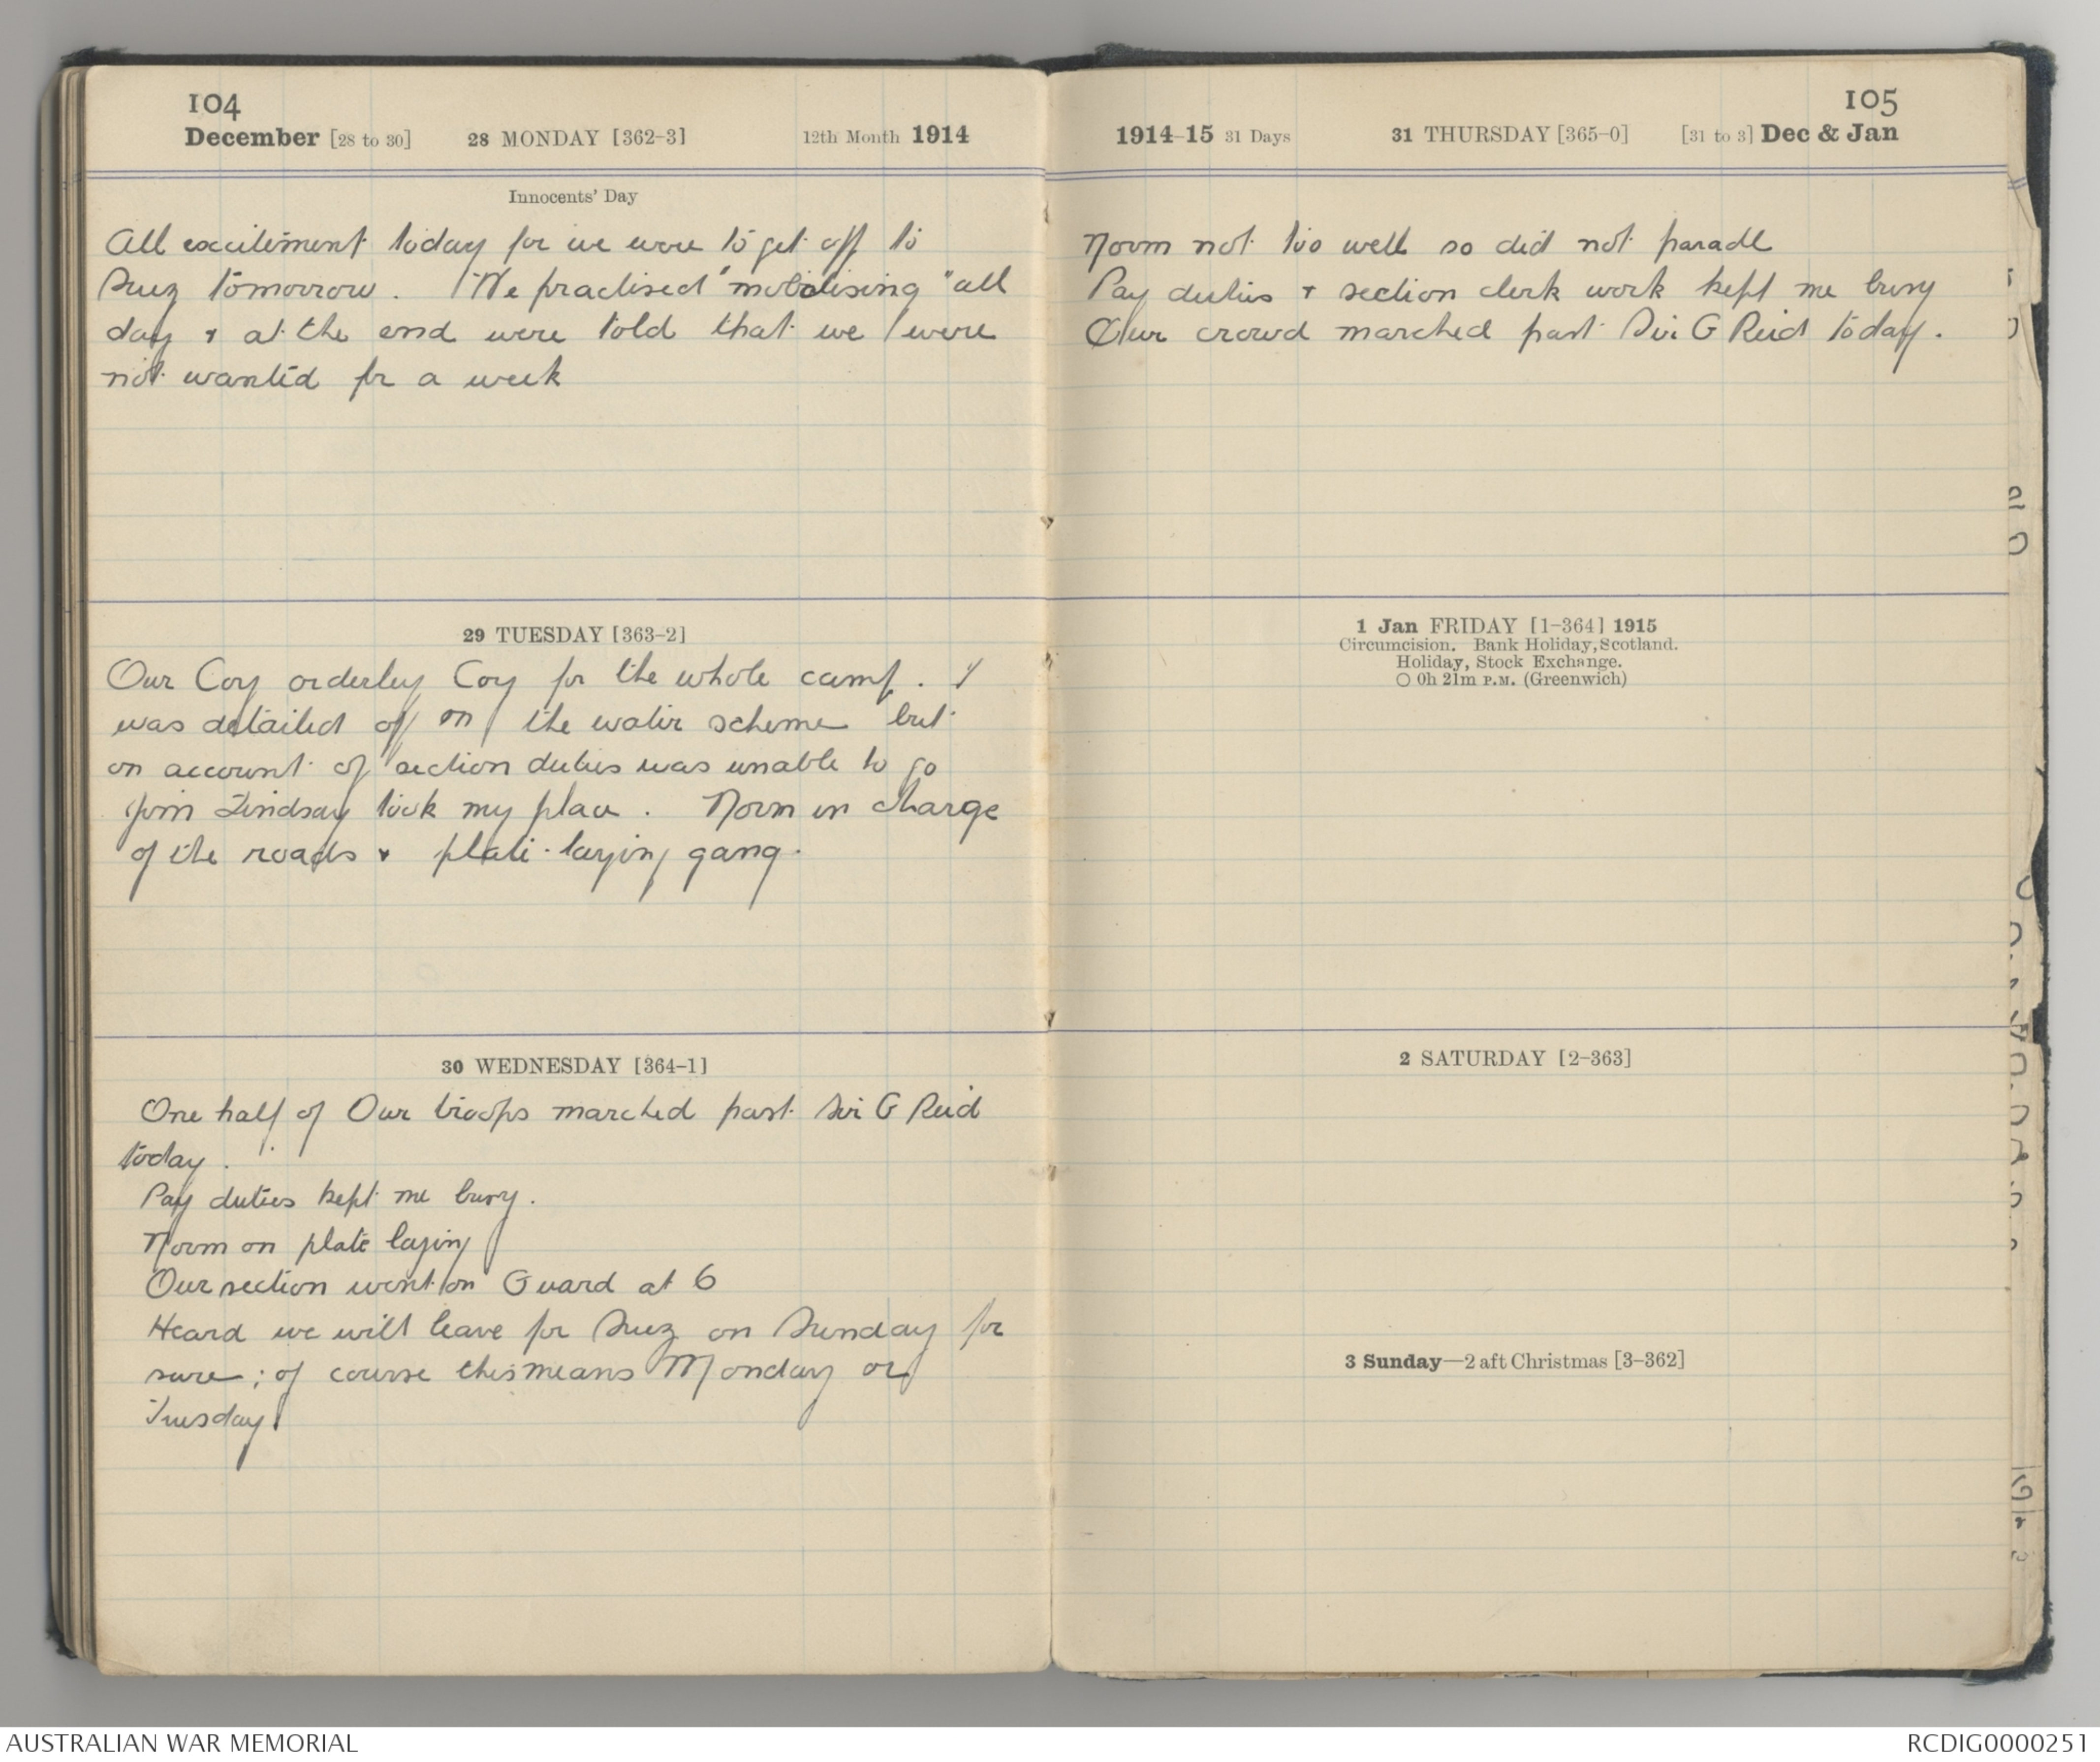 104
December [28 to 30] 28 MONDAY [362-3] 12th Month 1914
Innocents' Day
All excitement today for we were to get off to
Suez tomorrow. We practised "mobolising" all
day & at the end were told that we were
not wanted for a week
29 TUESDAY [363-2]
Our Coy orderley Coy for the whole camp. I
was detailed off on the water scheme but
on account of section duties was unable to go
Jim Lindsay took my place. Norm in charge
of the roads & plate-laying gang.
30 WEDNESDAY [364-1]
One half of Our troops marched past Sir G Reid
today.
Pay duties kept me busy.
Norm on plate laying
Our section went on Guard at 6
Heard we will leave for Suez on Sunday for
sure; of course this means Monday or
Tuesday.
105
1914-15 31 Days 31 THURSDAY [365-0] [31 to 3] Dec & Jan
Norm not too well so did not parade
Pay duties & section clerk work kept me busy
Our crowd marched past Sir G Reid today.
1 Jan FRIDAY [1-364] 1915
Circumcision. Bank Holiday, Scotland.
Holiday, Stock Exchange.
○ 0h 21m P.M. (Greenwich)
2 SATURDAY [2-363]
3 Sunday—2 aft Christmas [3-362]
AUSTRALIAN WAR MEMORIAL
RCDIG0000251